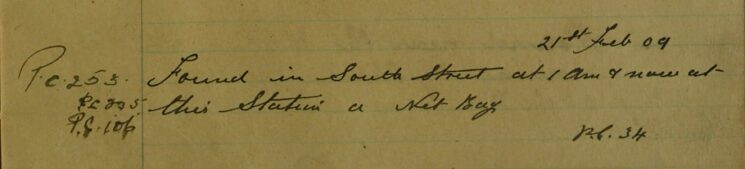 21st Feb 09
P.C. 253. Found in South Street at 1 Am & now at
P.C 225 this Station a Net Bag
P.C. 106
P.C. 34